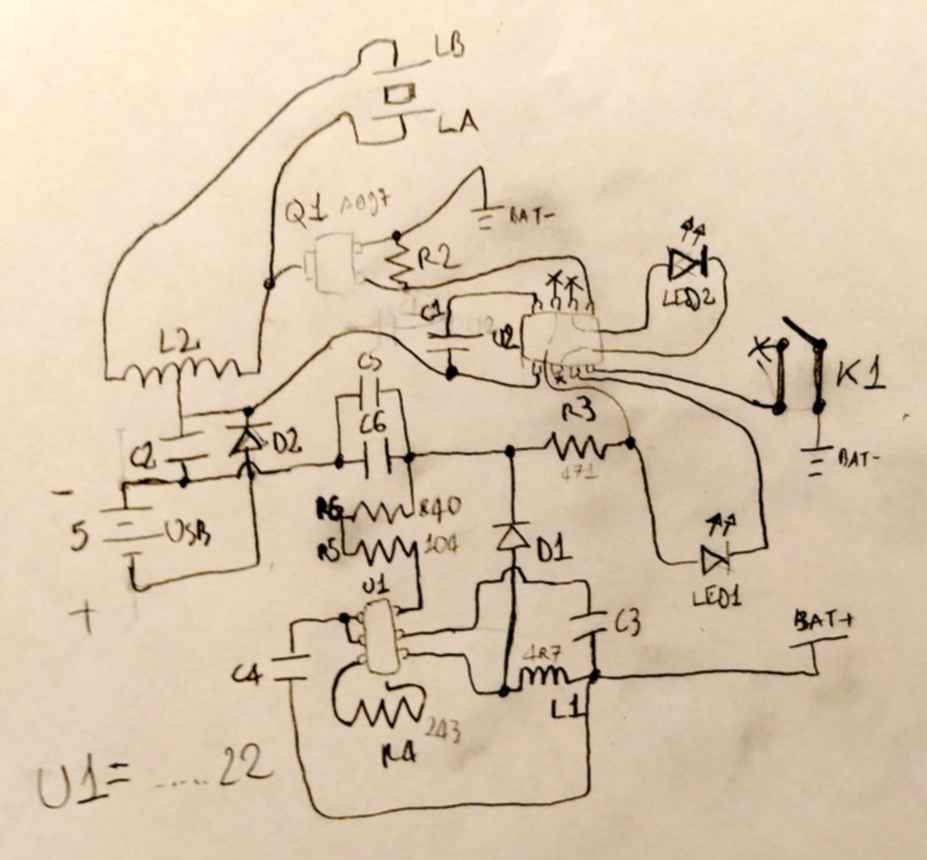 LB
LA
Q1 A097
BAT-
R2
LED2
C1
U2
L2
K1
C5
C6
R3
471
C2
D2
BAT-
-
5
USB
+
R6
840
R5
104
D1
U1
LED1
C3
BAT+
C4
4R7
L1
243
R4
U1= .....22